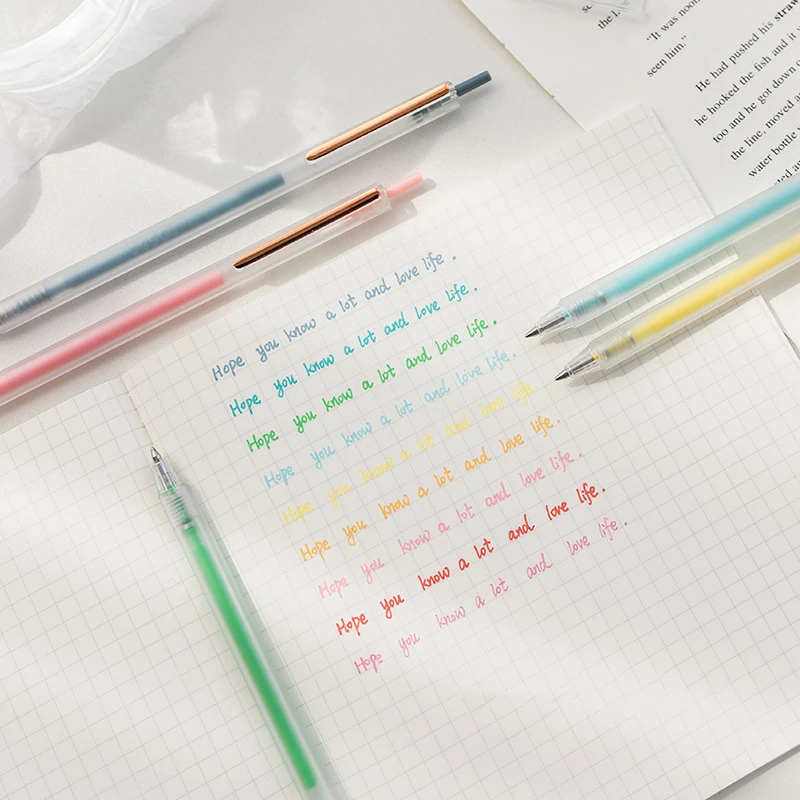 the l
"It was noon
seen him."
He had pushed his straw
he hooked the fish and it w
too and he got down o
the line, moved a
water bottle
Hope you know a lot and love life.
Hope you know a lot and love life.
Hope you know a lot and love life.
Hope you know a lot and love life.
Hope you know a lot and love life.
Hope you know a lot and love life.
Hope you know a lot and love life.
Hope you know a lot and love life.
Hope you know a lot and love life.